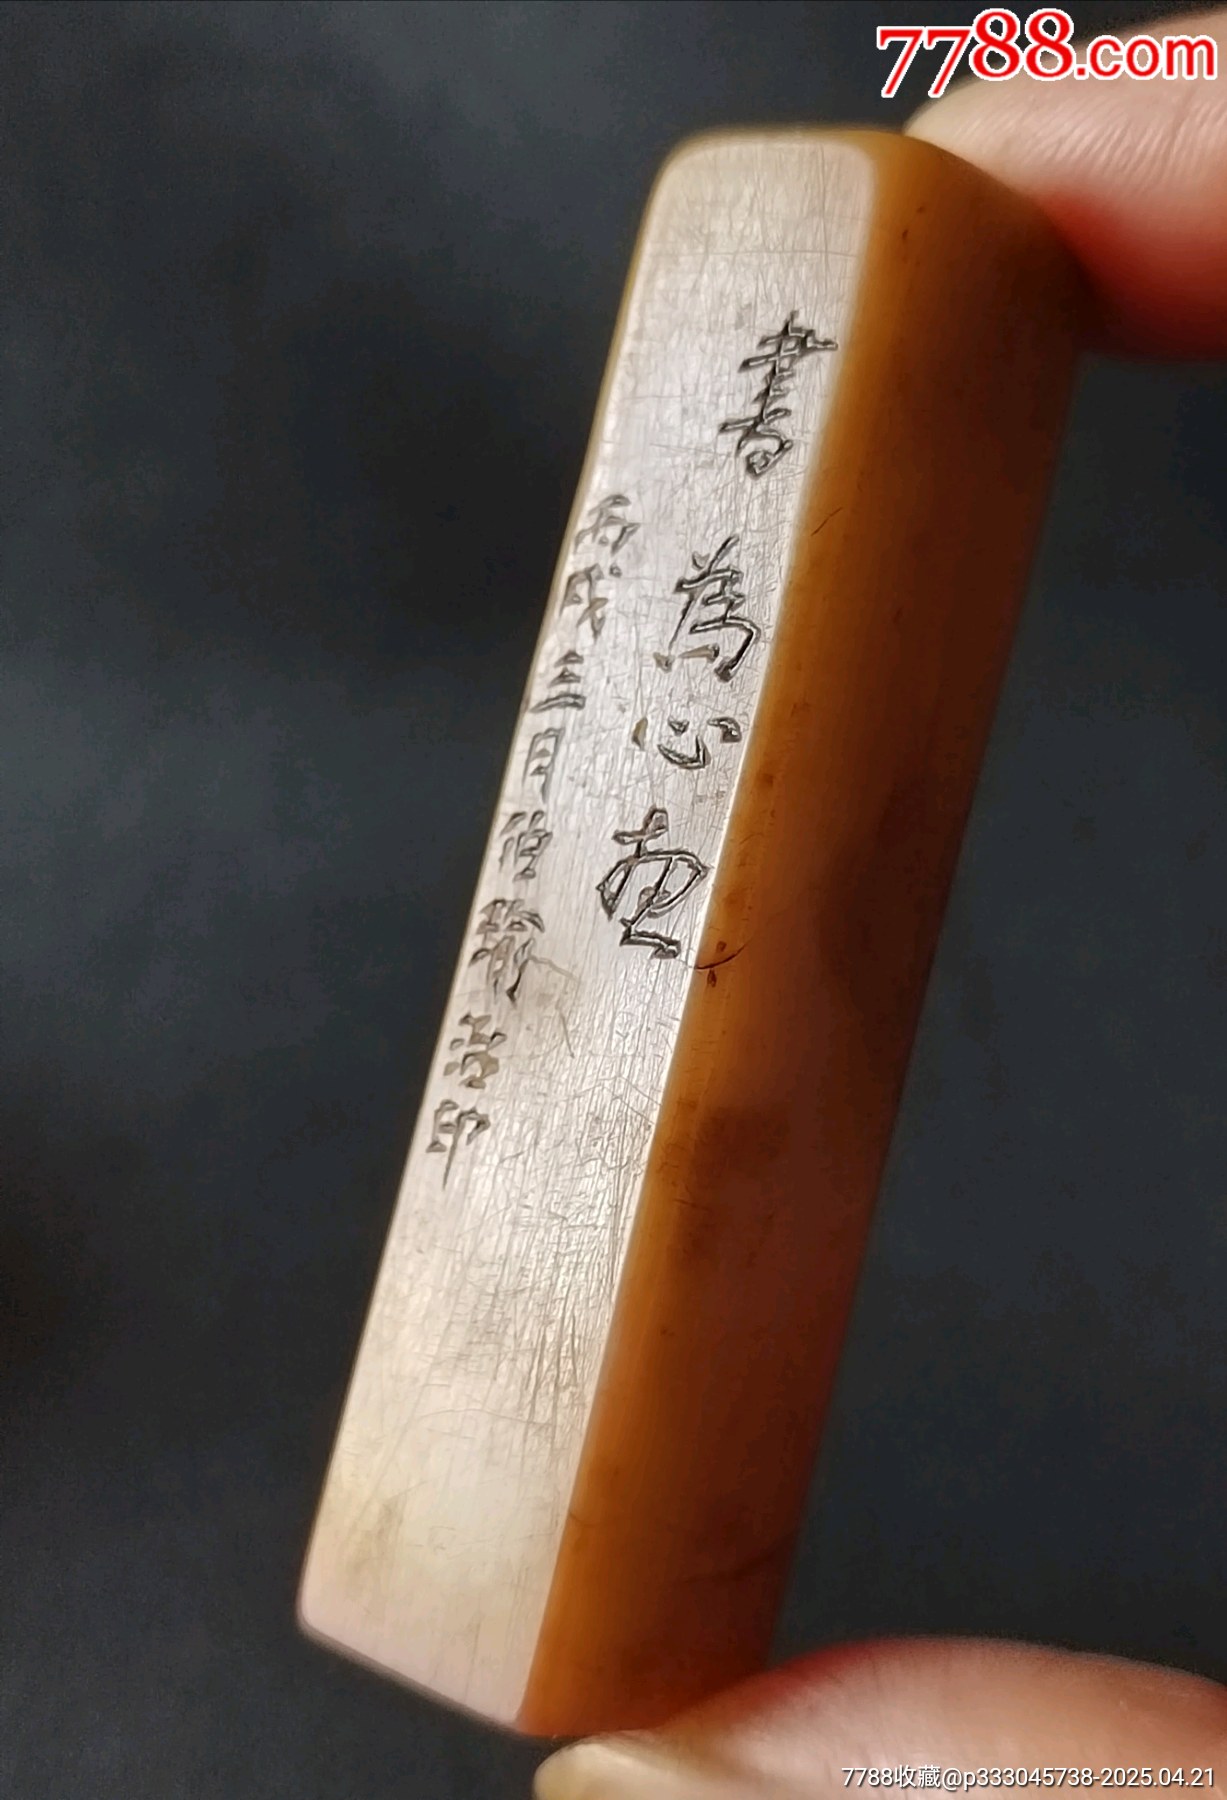 7788.com
書為心画
丙戌三月伯齡治印
7788收藏@p333045738-2025.04.21